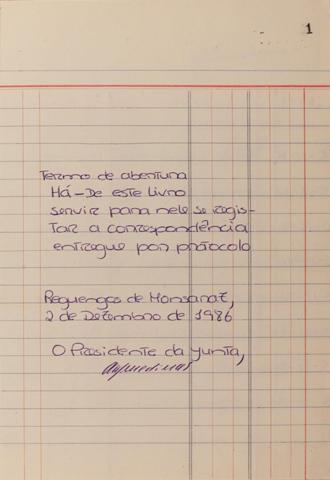 1
Termo de abertura
Há-De este livro
servir para nele se regis-
tar a correspondência
entregue por protocolo
Reguengos de Monsaraz,
2 de Dezembro de 1986
O Presidente da Junta,